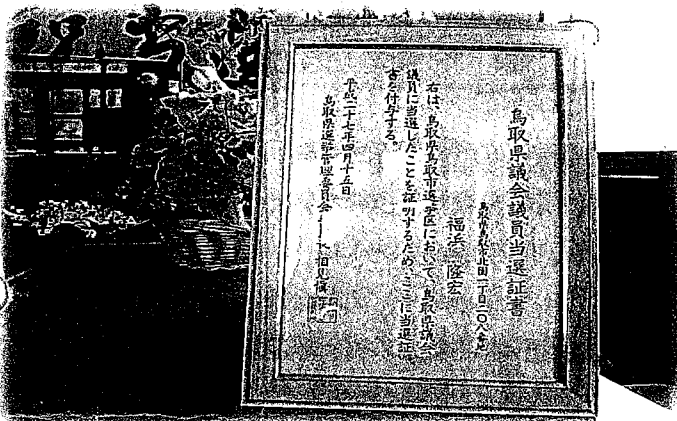 鳥取県議会議員当選証書
福浜 隆宏
右は、鳥取県鳥取市選挙区において、鳥取県議会
議員に当選したことを証明するため、ここに当選証
書を付与する。
平成二十七年四月十五日
鳥取県選挙管理委員会